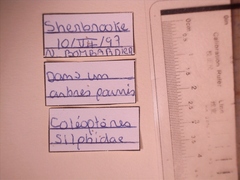 Sherbrooke
10/VII/97
N. BOMBARDIER
Dans un
arbres pourris
Coléoptères
Silphidae
0cm